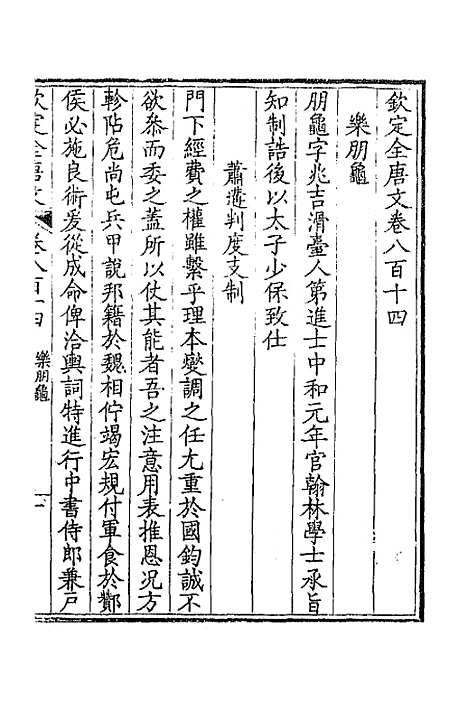 欽定全唐文卷八百十四
樂朋龜
朋龜字兆吉滑臺人第進士中和元年官翰林學士承旨
知制誥後以太子少保致仕
蕭遘判度支制
門下經費之權雖繫乎理本變調之任尤重於國鈞誠不
欲叅而委之蓋所以仗其能者吾之注意用表推恩況方
軫阽危尚屯兵甲說邦籍於魏相佇竭宏規付軍食於酇
侯必施良術爰從成命俾洽輿詞特進行中書侍郎兼戶
欽定全唐文 卷八百十四 樂朋龜 一